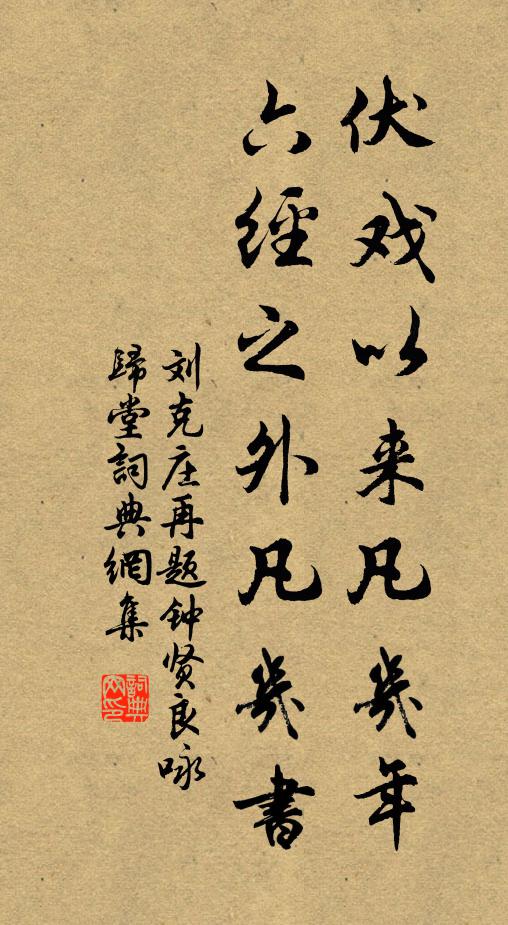 伏戏以来凡几年
六經之外凡几書
刘克庄再题钟贤良咏
歸堂詞典網集
詞典网印